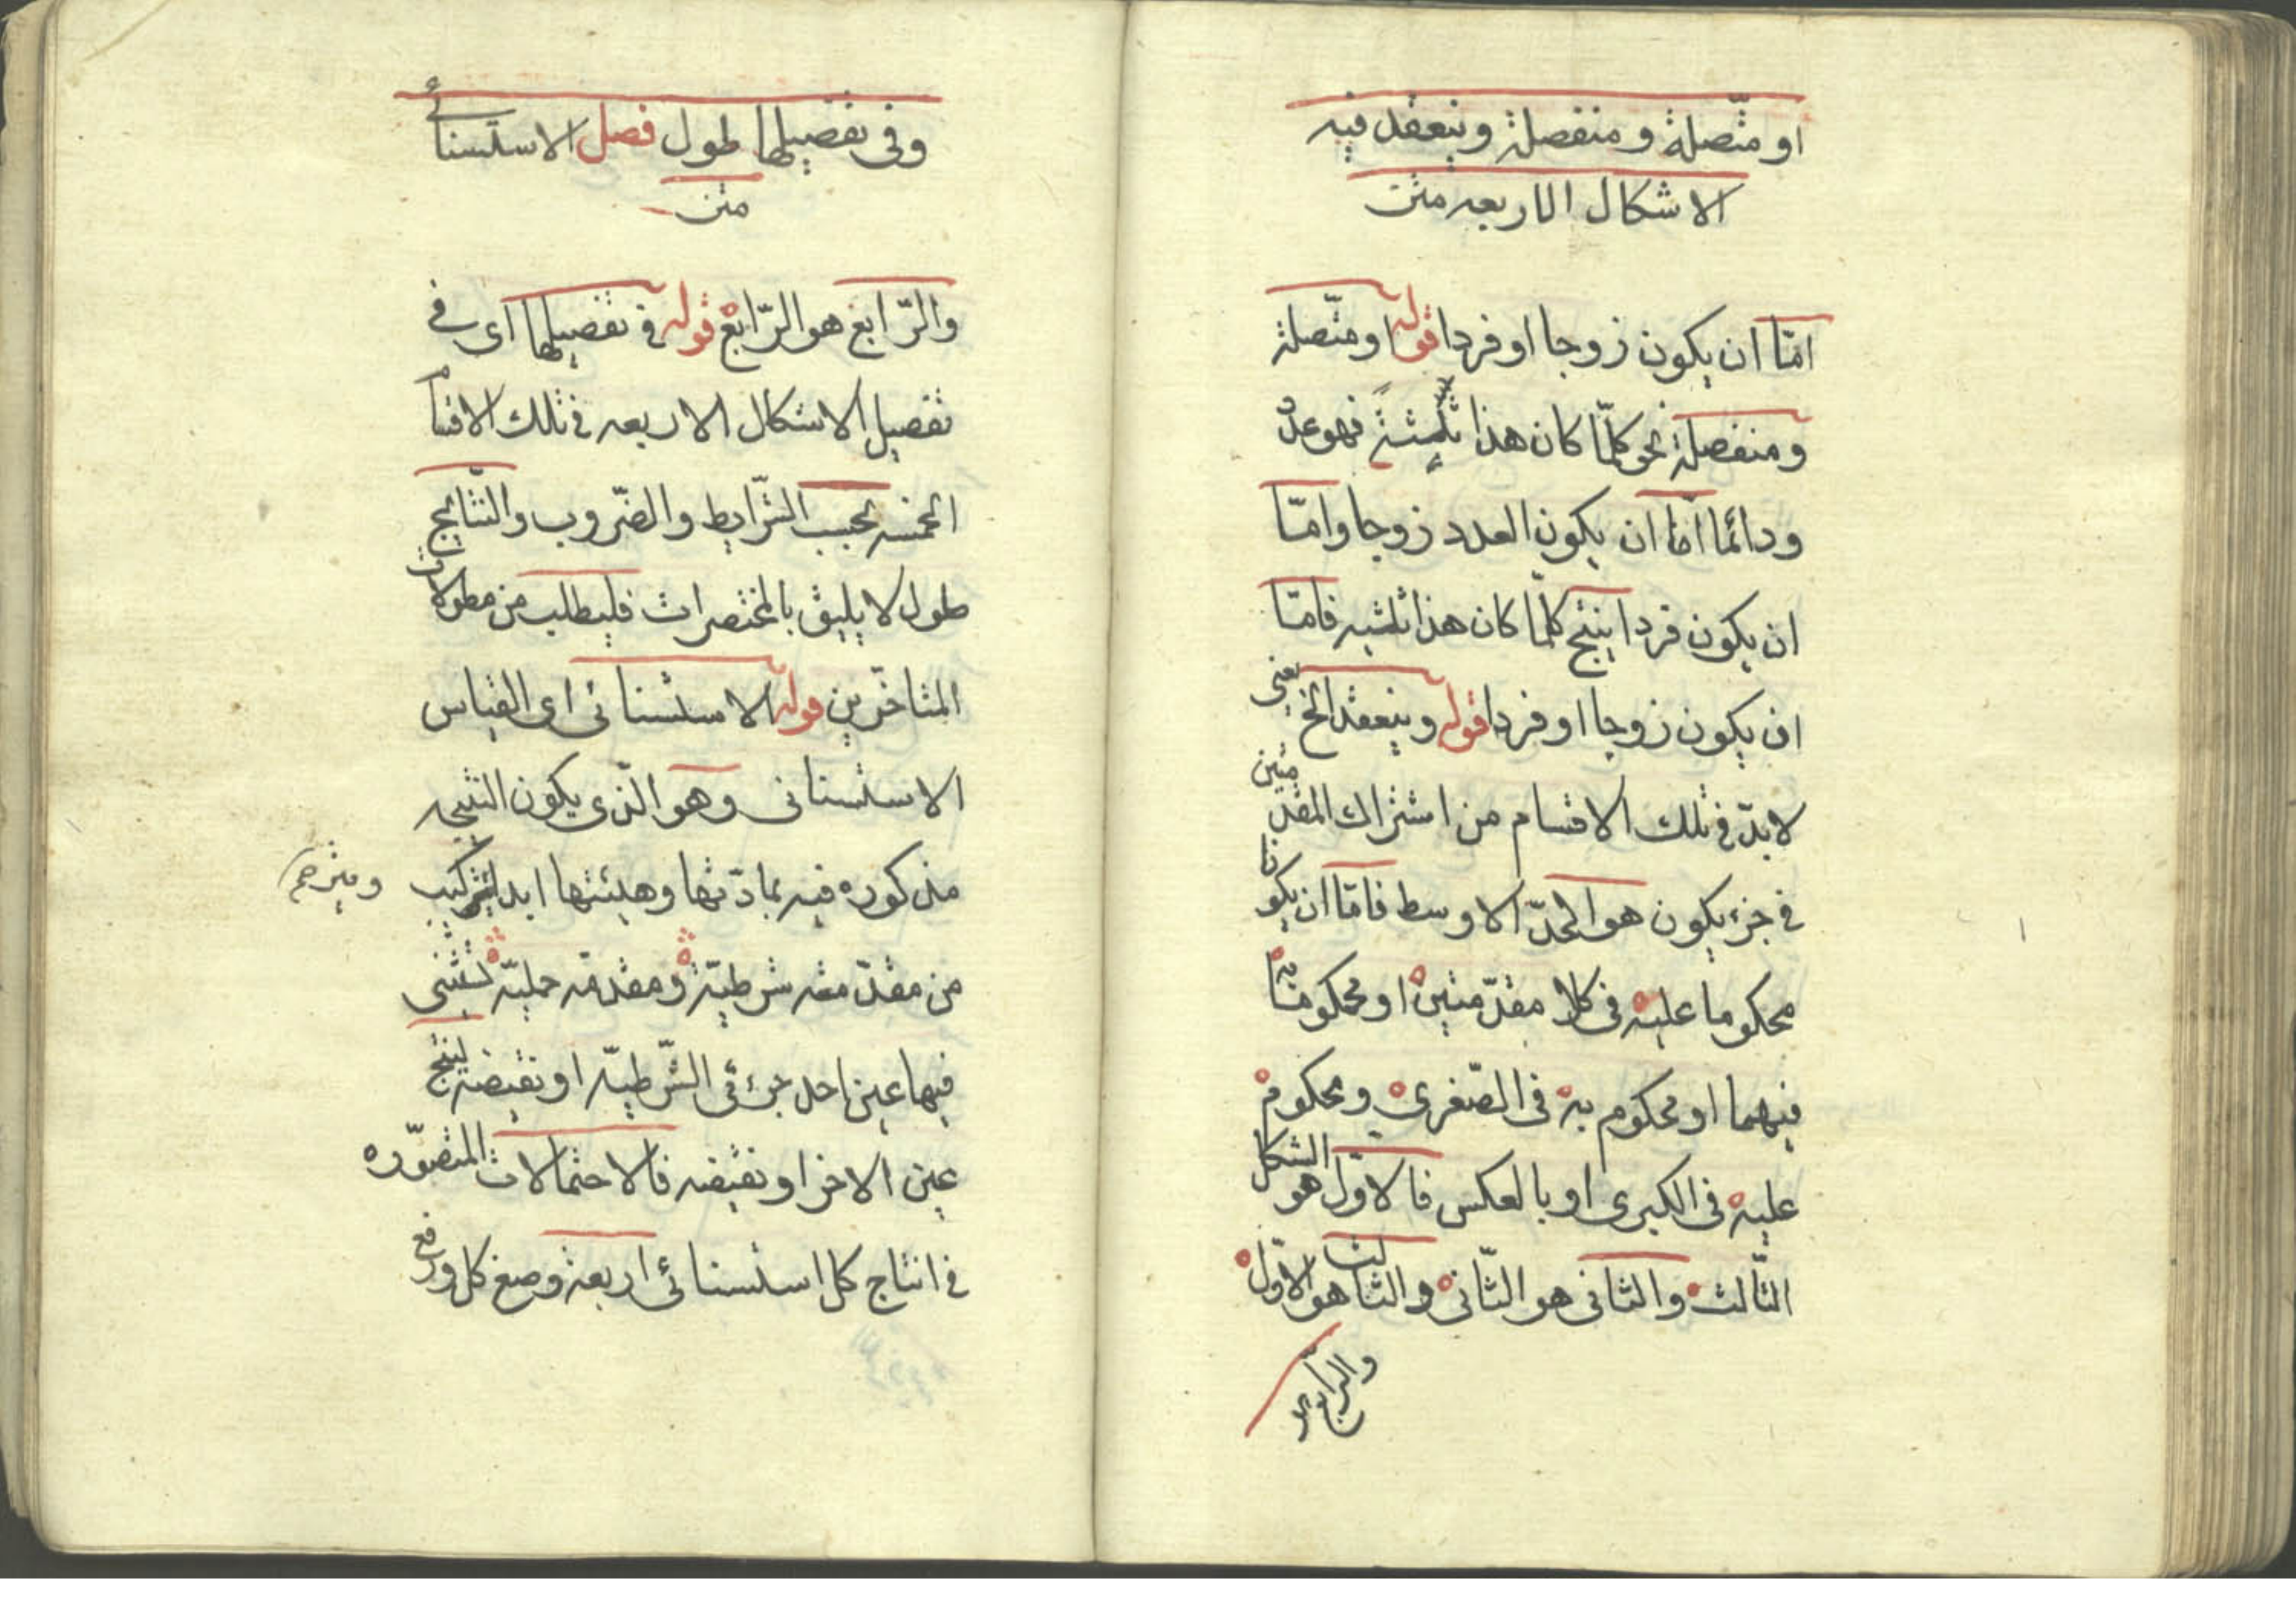 او متّصلة و منفصلة وينعقد فيه
الاشكال الاربعه متن
امّا ان يكون زوجا او فردا قوله او متّصلة
ومنفصلة نحو كلّما كان هذا ثلثة فهو عدد
ودائما امّا ان يكون العدد زوجا وامّا
ان يكون فردا ينتج كلّما كان هذا ثلثه فامّا
ان يكون زوجا او فردا قوله وينعقد الخ يعنى
لابدّ فى تلك الاقسام من اشتراك المقدّمتين
فى جزء يكون هو الحدّ الاوسط فامّا ان يكونا
محكوما عليه فى كلا مقدّمتين او محكوما به
فيهما او محكوم به فى الصّغرى ومحكوم
عليه فى الكبرى او بالعكس فالاوّل هو الشكل
الثّالث والثانى هو الثّانى والثالث هو الاوّل
والرّابع هو
وفى تفصيلها طول فصل الاستسنائى
متن
والرّابع هو الرّابع قوله فى تفصيلها اى فى
تفصيل الاشكال الاربعه فى تلك الاقسام
الخمسه بحسب الشّرايط والضّروب والنّتايج
طول لا يليق بالمختصرات فليطلب من مطولات
المتاخّرين قوله الاستسنائى اى القياس
الاستسنائى وهو الّذى يكون النتيجه
مذكوره فيه بمادّتها وهيئتها ابدا يتركيب
ومترجم
من مقدّمته شرطيّة ومقدمّه حمليّه تستثنى
فيها عين احد جزئى الشّرطيّه او نقيضه لينتج
عين الاخر او نقيضه فالاحتمالات المتصوّره
فى انتاج كل استسنائى اربعة وضع كل ورفع